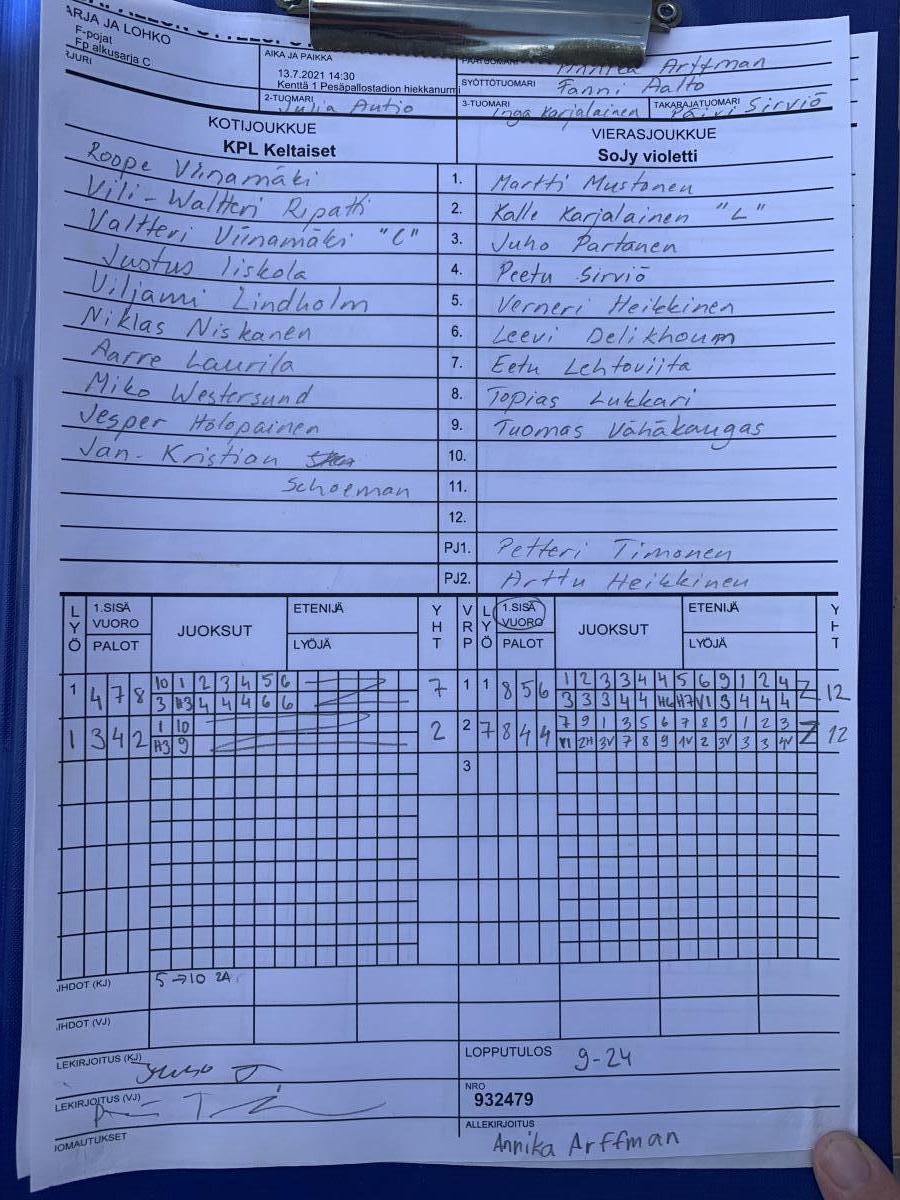 ARJA JA LOHKO
F-pojat
Fp alkusarja C
AIKA JA PAIKKA
13.7.2021 14:30
Kenttä 1 Pesäpallostadion hiekkanurmi
Annika Arffman
SYÖTTÖTUOMARI Fanni Aalto
2-TUOMARI Julia Autio
3-TUOMARI Inga Karjalainen
TAKARAJATUOMARI Päivi Sirviö
KOTIJOUKKUE
KPL Keltaiset
VIERASJOUKKUE
SoJy violetti
Roope Viinamäki 1. Martti Mustonen
Vili-Waltteri Ripatti 2. Kalle Karjalainen "L"
Valtteri Viinamäki "C" 3. Juho Partanen
Justus Iiskola 4. Peetu Sirviö
Viljami Lindholm 5. Verneri Heikkinen
Niklas Niskanen 6. Leevi Delikhoum
Aarre Laurila 7. Eetu Lehtoviita
Miko Westersund 8. Topias Lukkari
Jesper Holopainen 9. Tuomas Vähäkangas
Jan-Kristian 10.
Schoeman 11.
12.
PJ1. Petteri Timonen
PJ2. Arttu Heikkinen
LYÖ 1.SISÄ VUORO PALOT JUOKSUT ETENIJÄ LYÖJÄ YHT VRP LYÖ 1.SISÄ VUORO PALOT JUOKSUT ETENIJÄ LYÖJÄ YHT
1 4 7 8 10 1 2 3 4 5 6 7 1 1 8 5 6 1 2 3 3 4 4 5 6 9 1 2 4 12
3 H3 4 4 4 6 6 3 3 3 4 4 H6 H7 V1 3 4 4 4
1 3 4 2 1 10 2 2 7 8 4 4 7 9 1 3 5 6 7 8 9 1 2 3 12
H3 9 V1 2H 3V 7 8 9 1V 2 3V 3 3 4V
3
IHDOT (KJ) 5→10 2A
IHDOT (VJ)
LEKIRJOITUS (KJ)
LOPPUTULOS 9-24
LEKIRJOITUS (VJ)
NRO
932479
IOMAUTUKSET
ALLEKIRJOITUS
Annika Arffman